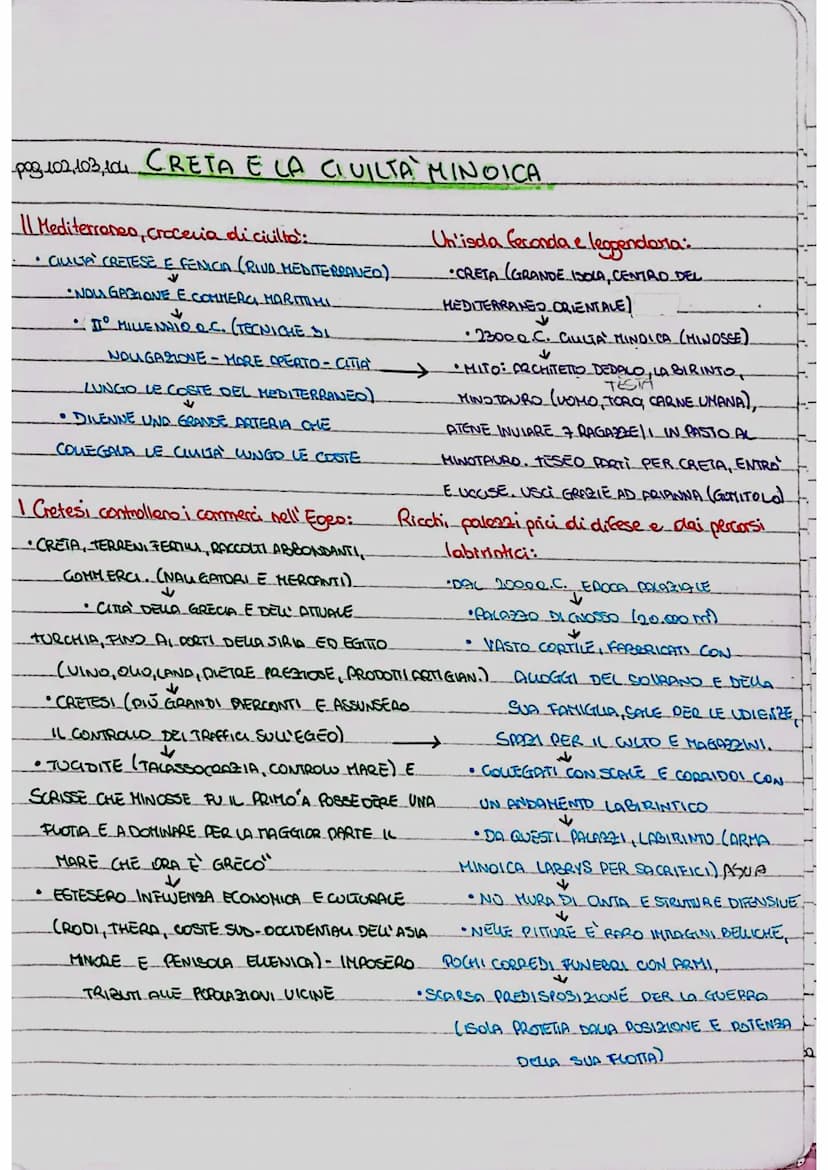 pag 102,103,104 CRETA E LA CIVILTÀ MINOICA
Il Mediterraneo, crocevia di civiltà:
• CIVILTÀ CRETESE E FENICIA (RIVA MEDITERRANEO)
↓
• NAVIGAZIONE E COMMERCI MARITTIMI
↓
• II° MILLENNIO a.C. (TECNICHE DI
NAVIGAZIONE - MARE APERTO - CITTÀ
LUNGO LE COSTE DEL MEDITERRANEO)
↓
• DIVENNE UNA GRANDE ARTERIA CHE
COLLEGAVA LE CIVILTÀ LUNGO LE COSTE
→
Un'isola feconda e leggendaria:
• CRETA (GRANDE ISOLA, CENTRO DEL
MEDITERRANEO ORIENTALE)
↓
• 2300 a.C. CIVILTÀ MINOICA (MINOSSE)
↓
• MITO: ARCHITETTO DEDALO, LABIRINTO,
TESTA
MINOTAURO (UOMO, TORO, CARNE UMANA),
ATENE INVIARE 7 RAGAZZE/I IN PASTO AL
MINOTAURO. TESEO PARTÌ PER CRETA, ENTRÒ
E UCCISE. USCÌ GRAZIE AD ARIANNA (GOMITOLO)
I Cretesi controllano i commerci nell'Egeo:
• CRETA, TERRENI FERTILI, RACCOLTI ABBONDANTI,
COMMERCI. (NAVIGATORI E MERCANTI)
↓
• CITTÀ DELLA GRECIA E DELL'ATTUALE
TURCHIA, FINO AI PORTI DELLA SIRIA ED EGITTO
(VINO, OLIO, LANA, PIETRE PREZIOSE, PRODOTTI ARTIGIAN.)
↓
• CRETESI (PIÙ GRANDI MERCANTI E ASSUNSERO
IL CONTROLLO DEI TRAFFICI SULL'EGEO)
↓
• TUCIDITE (TALASSOCRAZIA, CONTROLLO MARE) E
SCRISSE CHE MINOSSE FU IL PRIMO "A POSSEDERE UNA
FLOTTA E A DOMINARE PER LA MAGGIOR PARTE IL
MARE CHE ORA È GRECO"
↓
• ESTESERO INFLUENZA ECONOMICA E CULTURALE
(RODI, THERA, COSTE SUD-OCCIDENTALI DELL'ASIA
MINORE E PENISOLA ELLENICA) - IMPOSERO
TRIBUTI ALLE POPOLAZIONI VICINE
→
Ricchi palazzi prici di difese e dai percorsi
labirintici:
• DAL 2000 a.C. EPOCA PALAZIALE
↓
• PALAZZO DI CNOSSO (20.000 m²)
↓
• VASTO CORTILE, FABBRICATI CON
ALLOGGI DEL SOVRANO E DELLA
SUA FAMIGLIA, SALE PER LE UDIENZE,
SPAZI PER IL CULTO E MAGAZZINI.
↓
• COLLEGATI CON SCALE E CORRIDOI CON
UN ANDAMENTO LABIRINTICO
↓
• DA QUESTI PALAZZI, LABIRINTO (ARMA
MINOICA LABRYS PER SACRIFICI) ASCIA
↓
• NO MURA DI CINTA E STRUTTURE DIFENSIVE
↓
• NELLE PITTURE È RARO IMMAGINI BELLICHE,
POCHI CORREDI FUNEBRI CON ARMI,
↓
• SCARSA PREDISPOSIZIONE PER LA GUERRA
(ISOLA PROTETTA DALLA POSIZIONE E POTENZA
DELLA SUA FLOTTA)